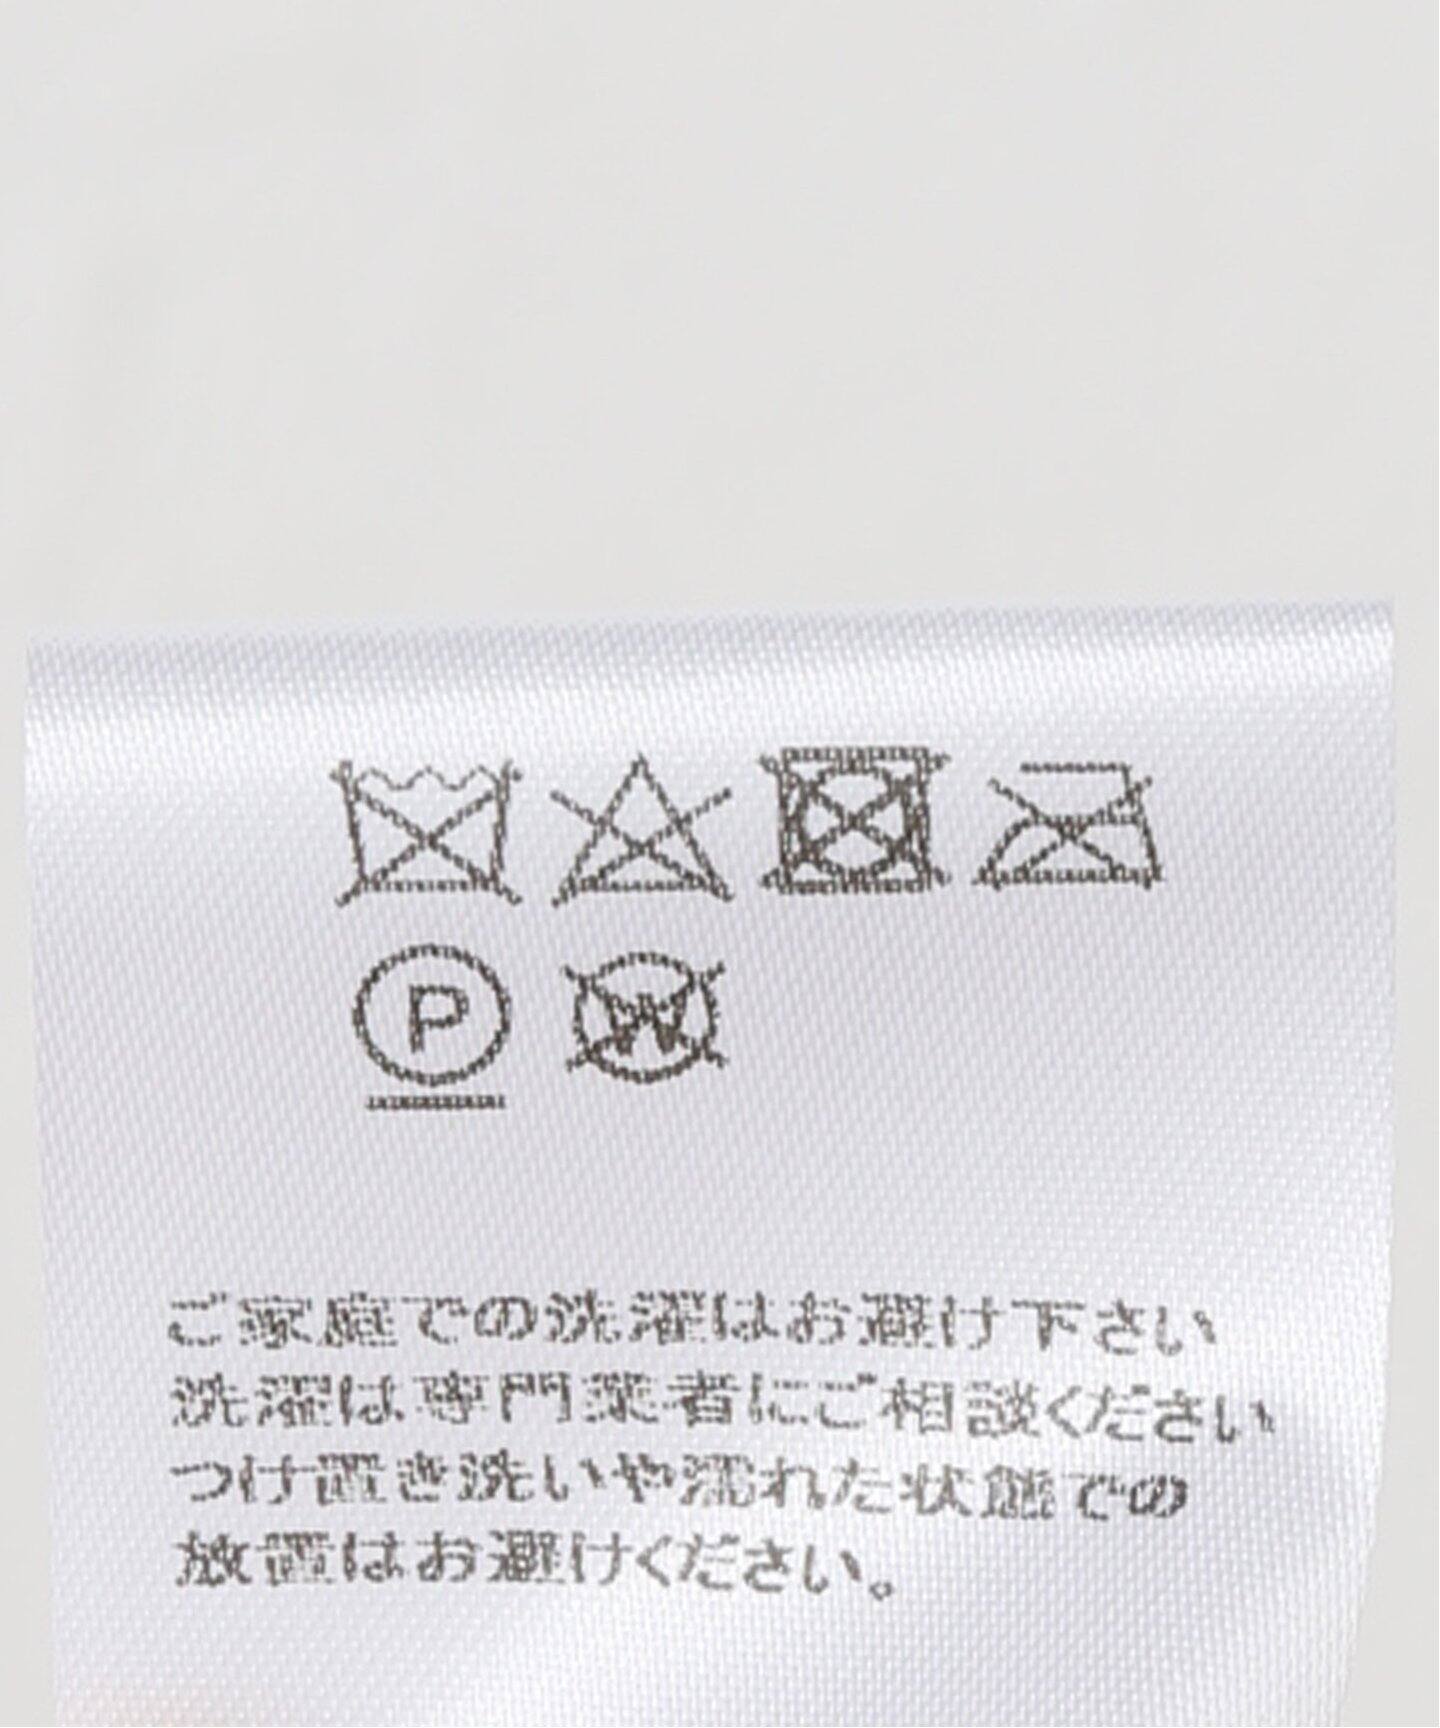 P W
ご家庭での洗濯はお避け下さい
洗濯は専門業者にご相談ください
つけ置き洗いや濡れた状態での
放置はお避けください。